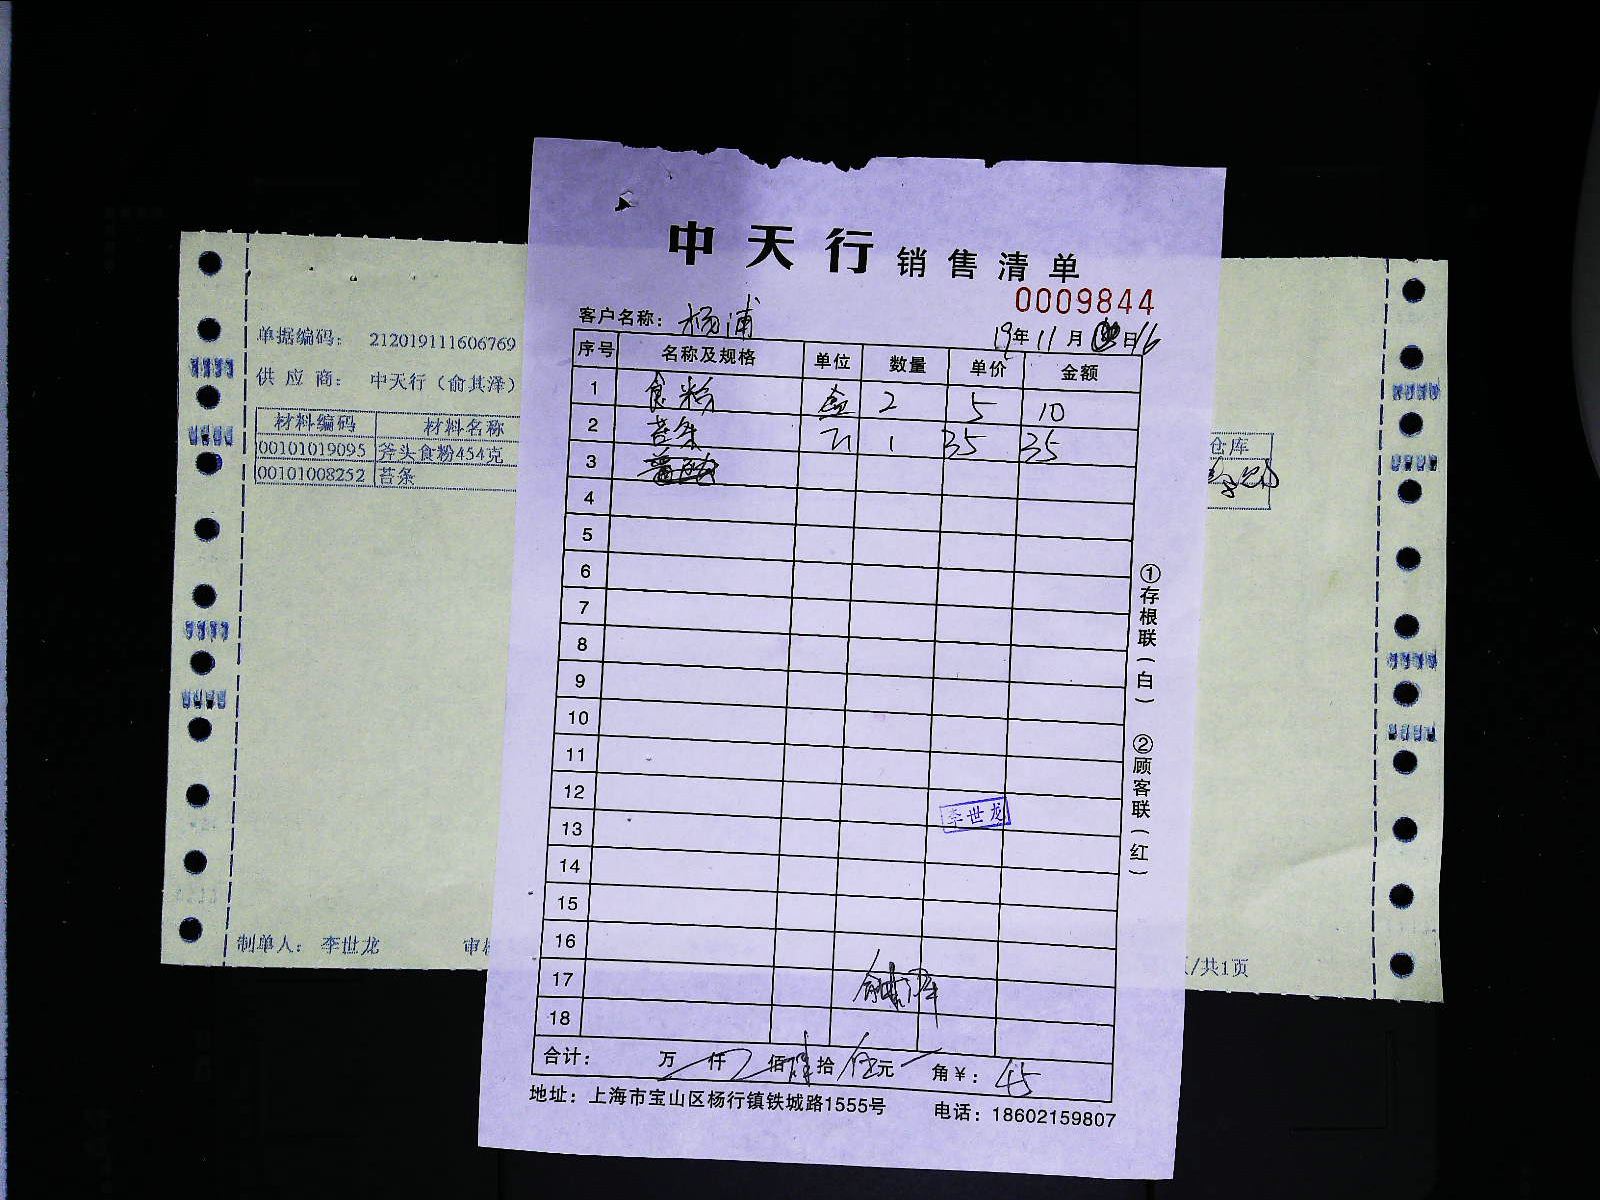 中天行 销售清单
0009844
客户名称： 杨浦
19年11月 日16
序号 名称及规格 单位 数量 单价 金额
1 食粉 盒 2 5 10
2 苔条 1 35 35
3
4
5
6
7
8
9
10
11
12
13
14
15
16
17
18
李世龙
合计： 万 仟 佰 肆拾 伍元 角￥： 45
地址：上海市宝山区杨行镇铁城路1555号 电话：18602159807
①存根联（白） ②顾客联（红）
单据编码： 212019111606769
供应商： 中天行（俞其泽）
材料编码 材料名称 仓库
00101019095 斧头食粉454克
00101008252 苔条
制单人： 李世龙 审 /共1页